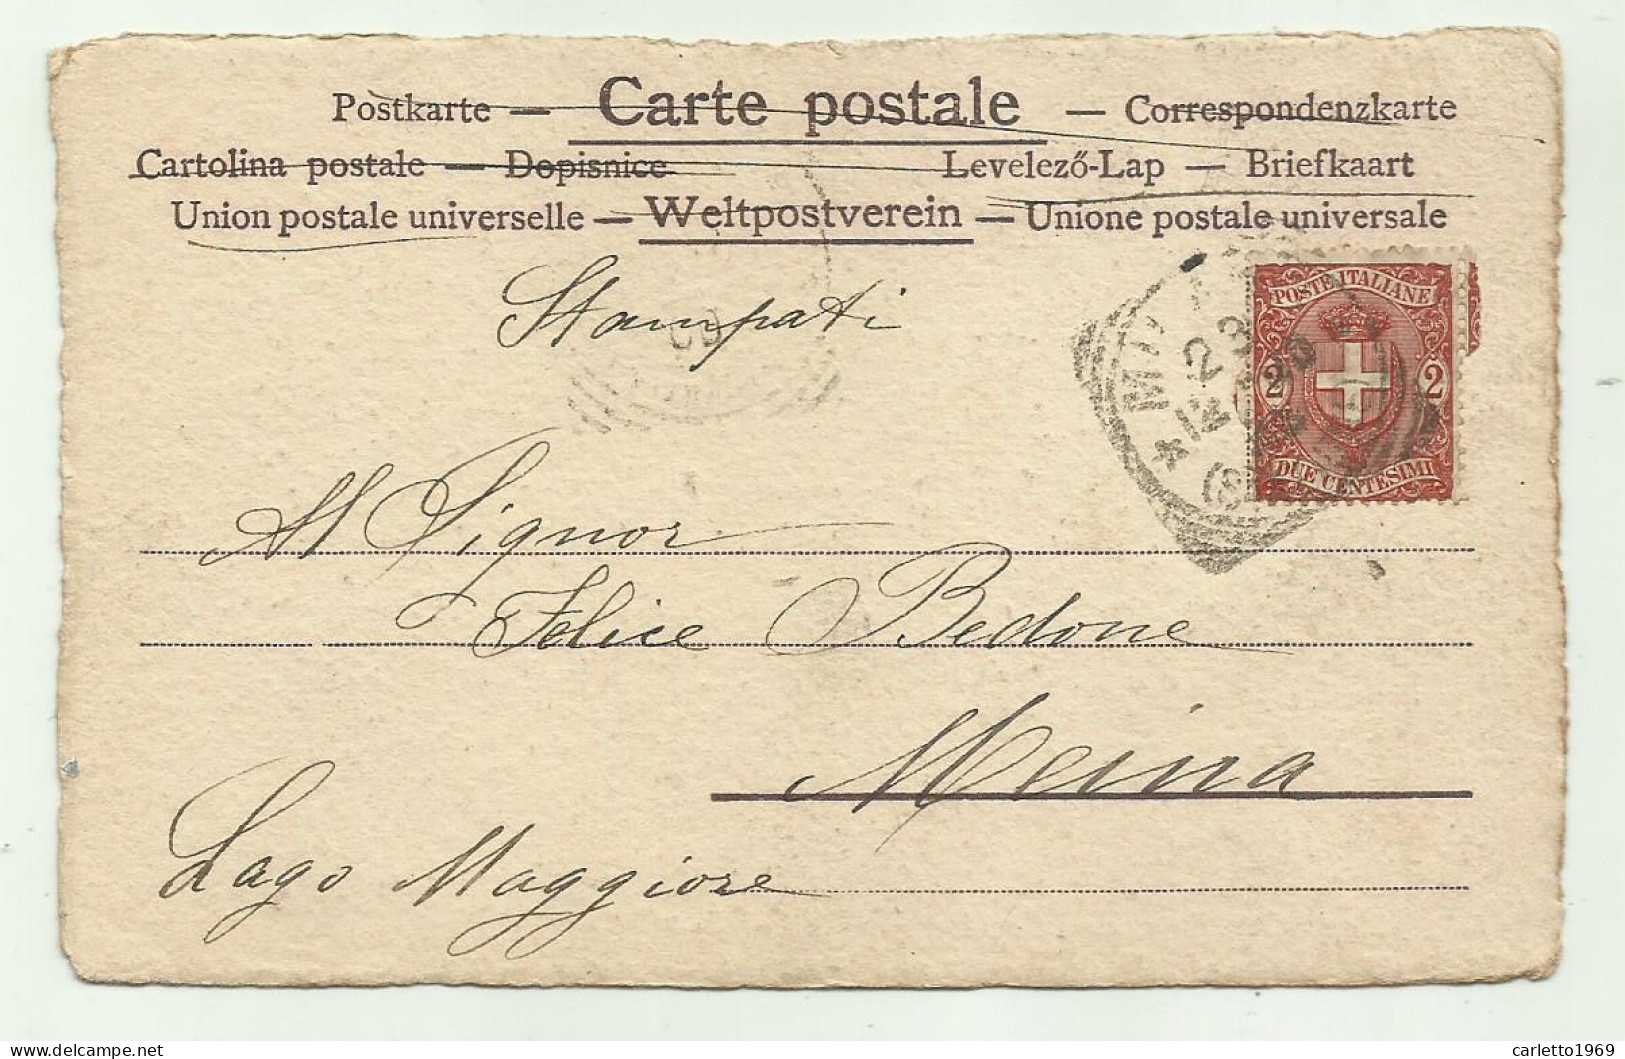 Postkarte — Carte postale — Correspondenzkarte
Cartolina postale — Dopisnice Levelező-Lap — Briefkaart
Union postale universelle — Weltpostverein — Unione postale universale
Stampati
POSTE ITALIANE
2 2
DUE CENTESIMI
Al Signor
Felice Bedone
Meina
Lago Maggiore
carletto1969